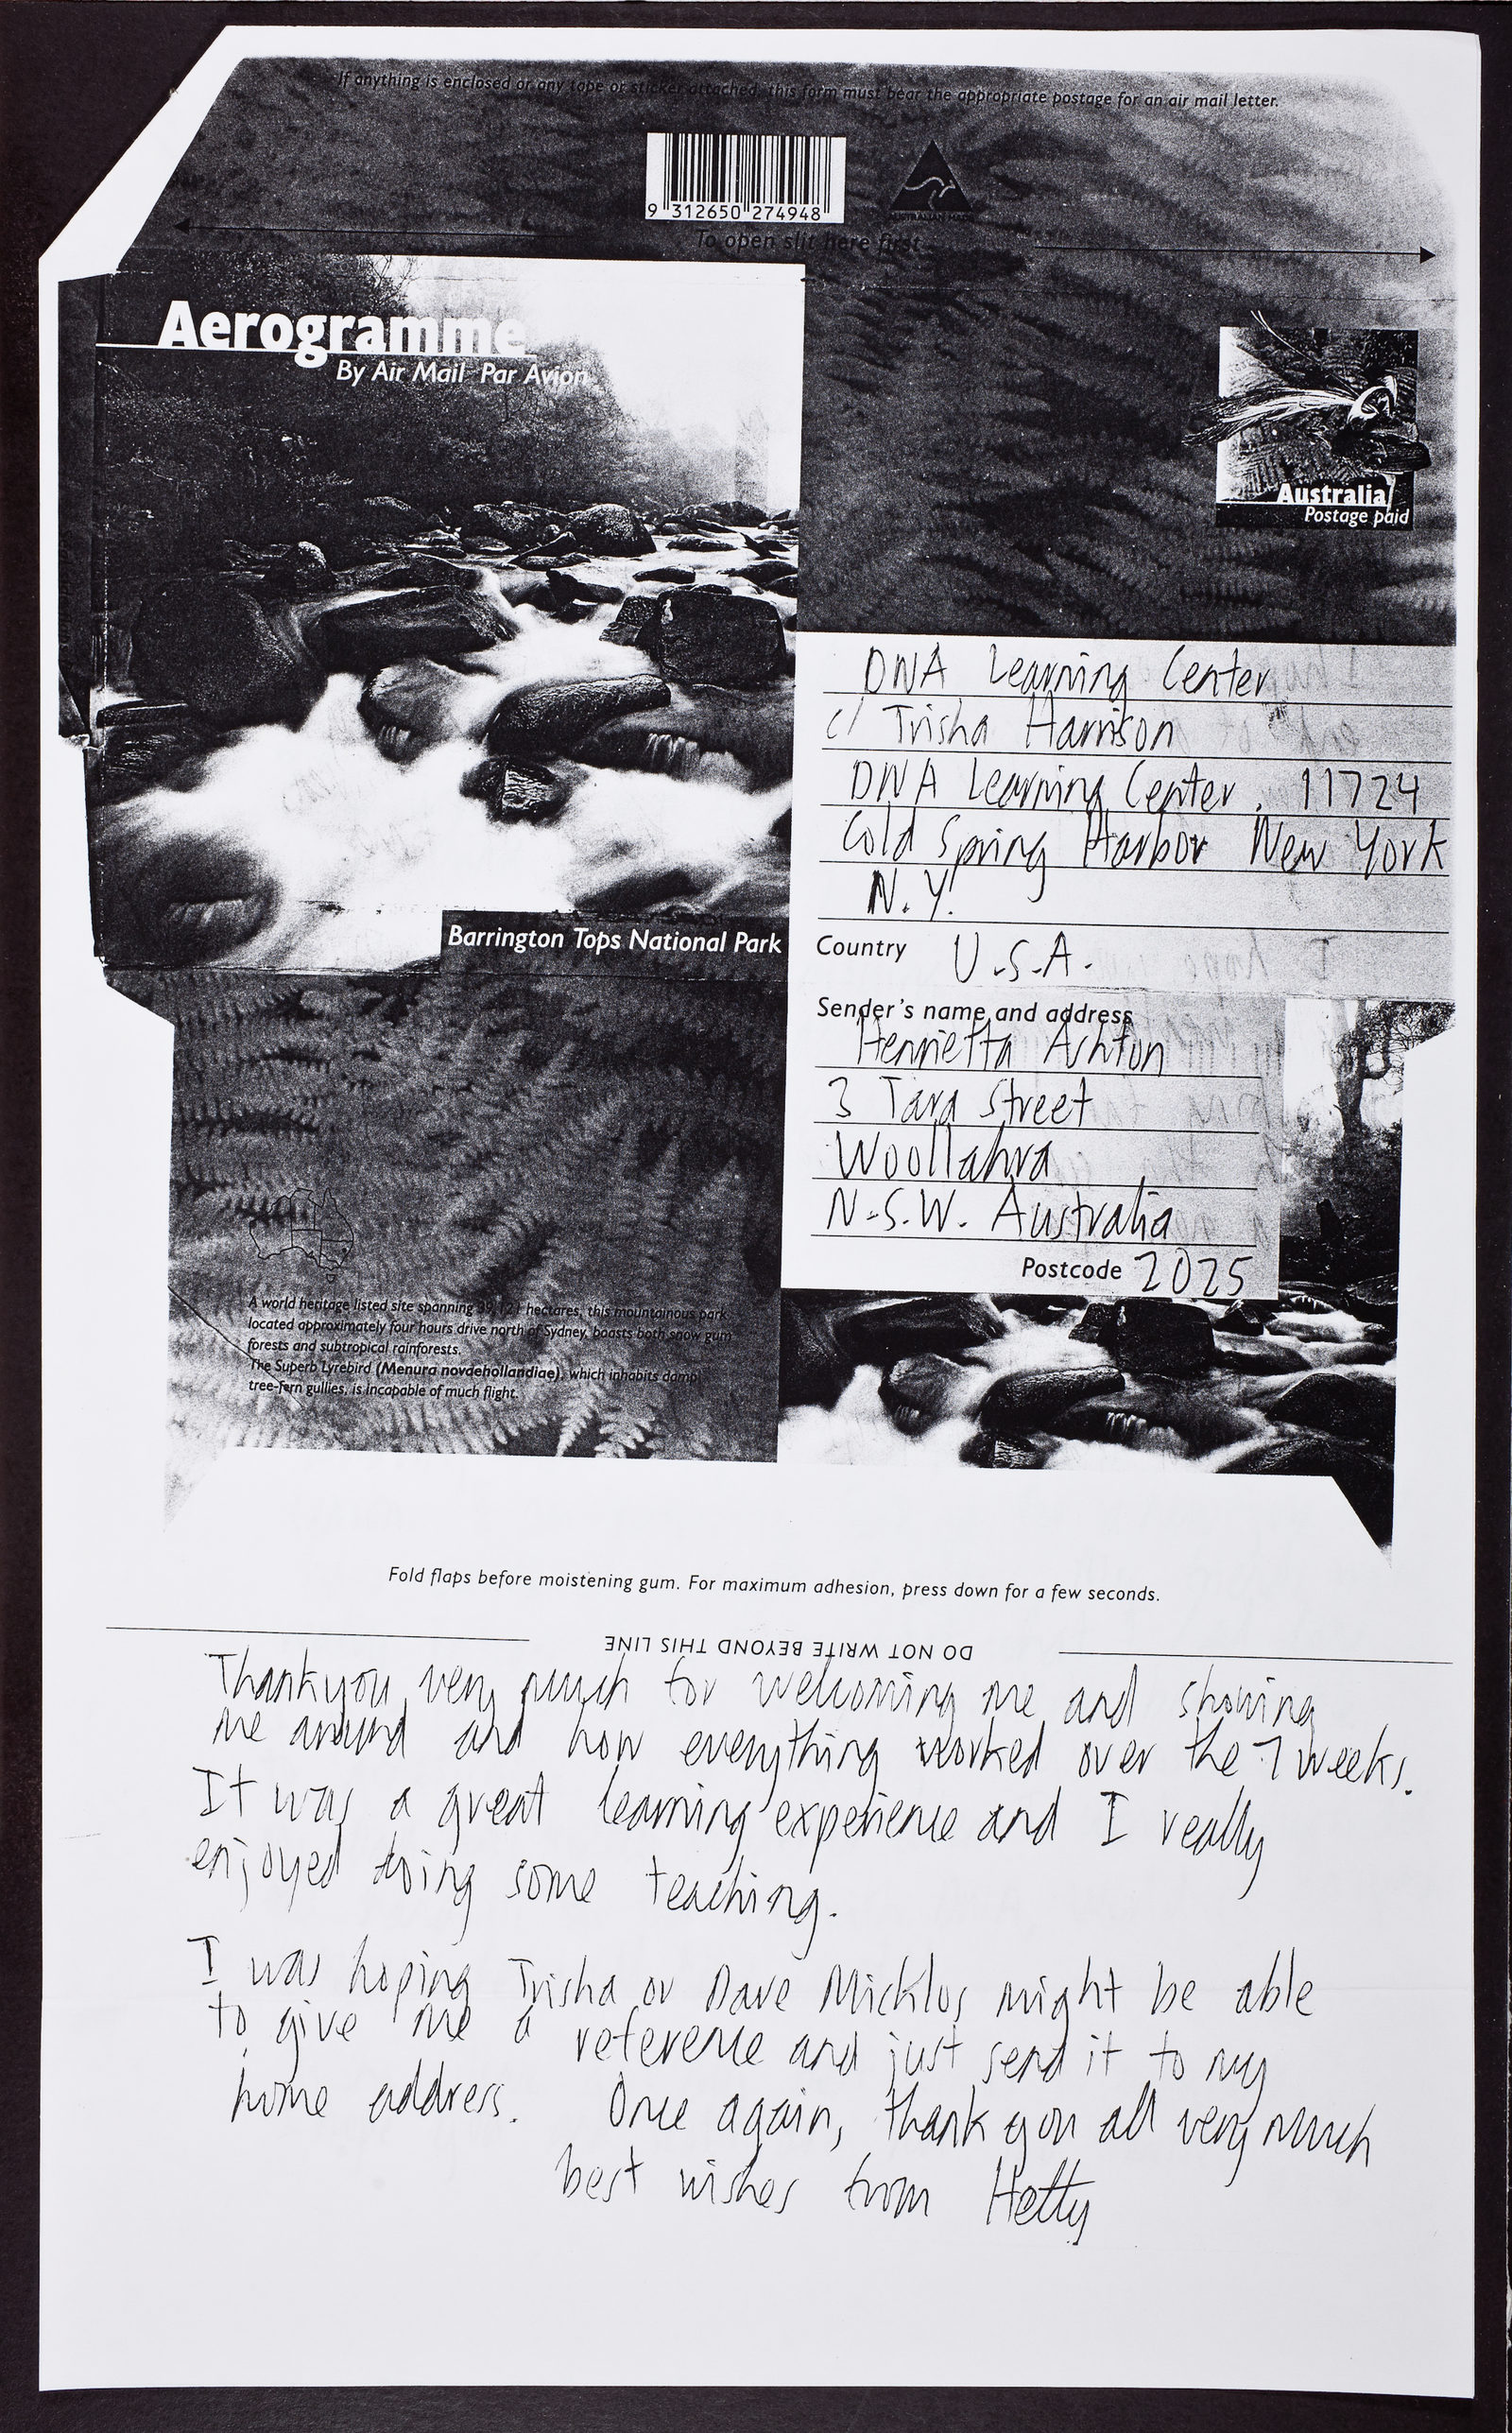 If anything is enclosed or any tape or sticker attached, this form must bear the appropriate postage for an air mail letter.
9 312650 274948
AUSTRALIAN MADE
To open slit here first
Aerogramme
By Air Mail Par Avion
Australia
Postage paid
DNA Learning Center
c/ Trisha Harrison
DNA Learning Center. 11724
Cold Spring Harbor New York
N.Y.
Barrington Tops National Park
Country U.S.A.
Sender's name and address
Henrietta Ashton
3 Tara Street
Woollahra
N.S.W. Australia
Postcode 2025
A world heritage listed site spanning 39,121 hectares, this mountainous park
located approximately four hours drive north of Sydney, boasts both snow gum
forests and subtropical rainforests.
The Superb Lyrebird (Menura novaehollandiae), which inhabits damp
tree-fern gullies, is incapable of much flight.
Fold flaps before moistening gum. For maximum adhesion, press down for a few seconds.
DO NOT WRITE BEYOND THIS LINE
Thankyou very much for welcoming me and showing
me around and how everything worked over the 7 weeks.
It was a great learning experience and I really
enjoyed doing some teaching.
I was hoping Trisha or Dave Micklos might be able
to give me a reference and just send it to my
home address. Once again, thank you all very much
best wishes from Hetty